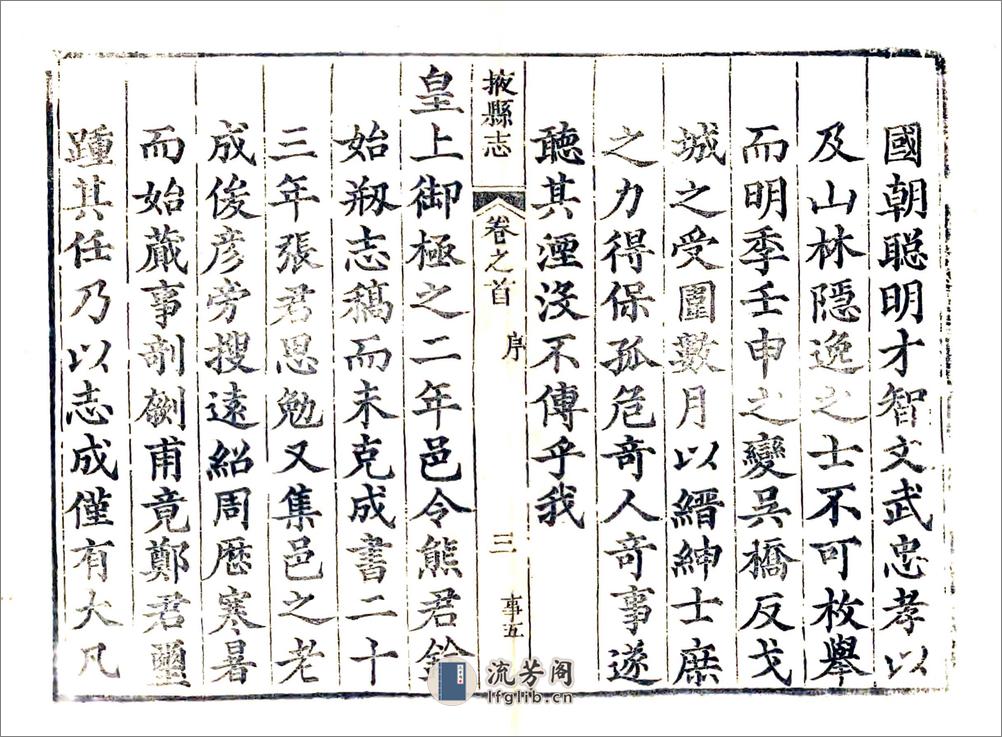 國朝聰明才智文武忠孝以
及山林隱逸之士不可枚舉
而明季壬申之變吳橋反戈
城之受圍數月以縉紳士庶
之力得保孤危竒人竒事遂
聽其湮沒不傳乎我
掖縣志 卷之首 序 三 事五
皇上御極之二年邑令熊君
始剏志稿而未克成書二十
三年張君思勉又集邑之老
成俊彥旁搜遠紹周厯寒暑
而始蕆事剞劂甫竟鄭君璽
踵其任乃以志成僅有大凡
流芳阁
lfglib.cn